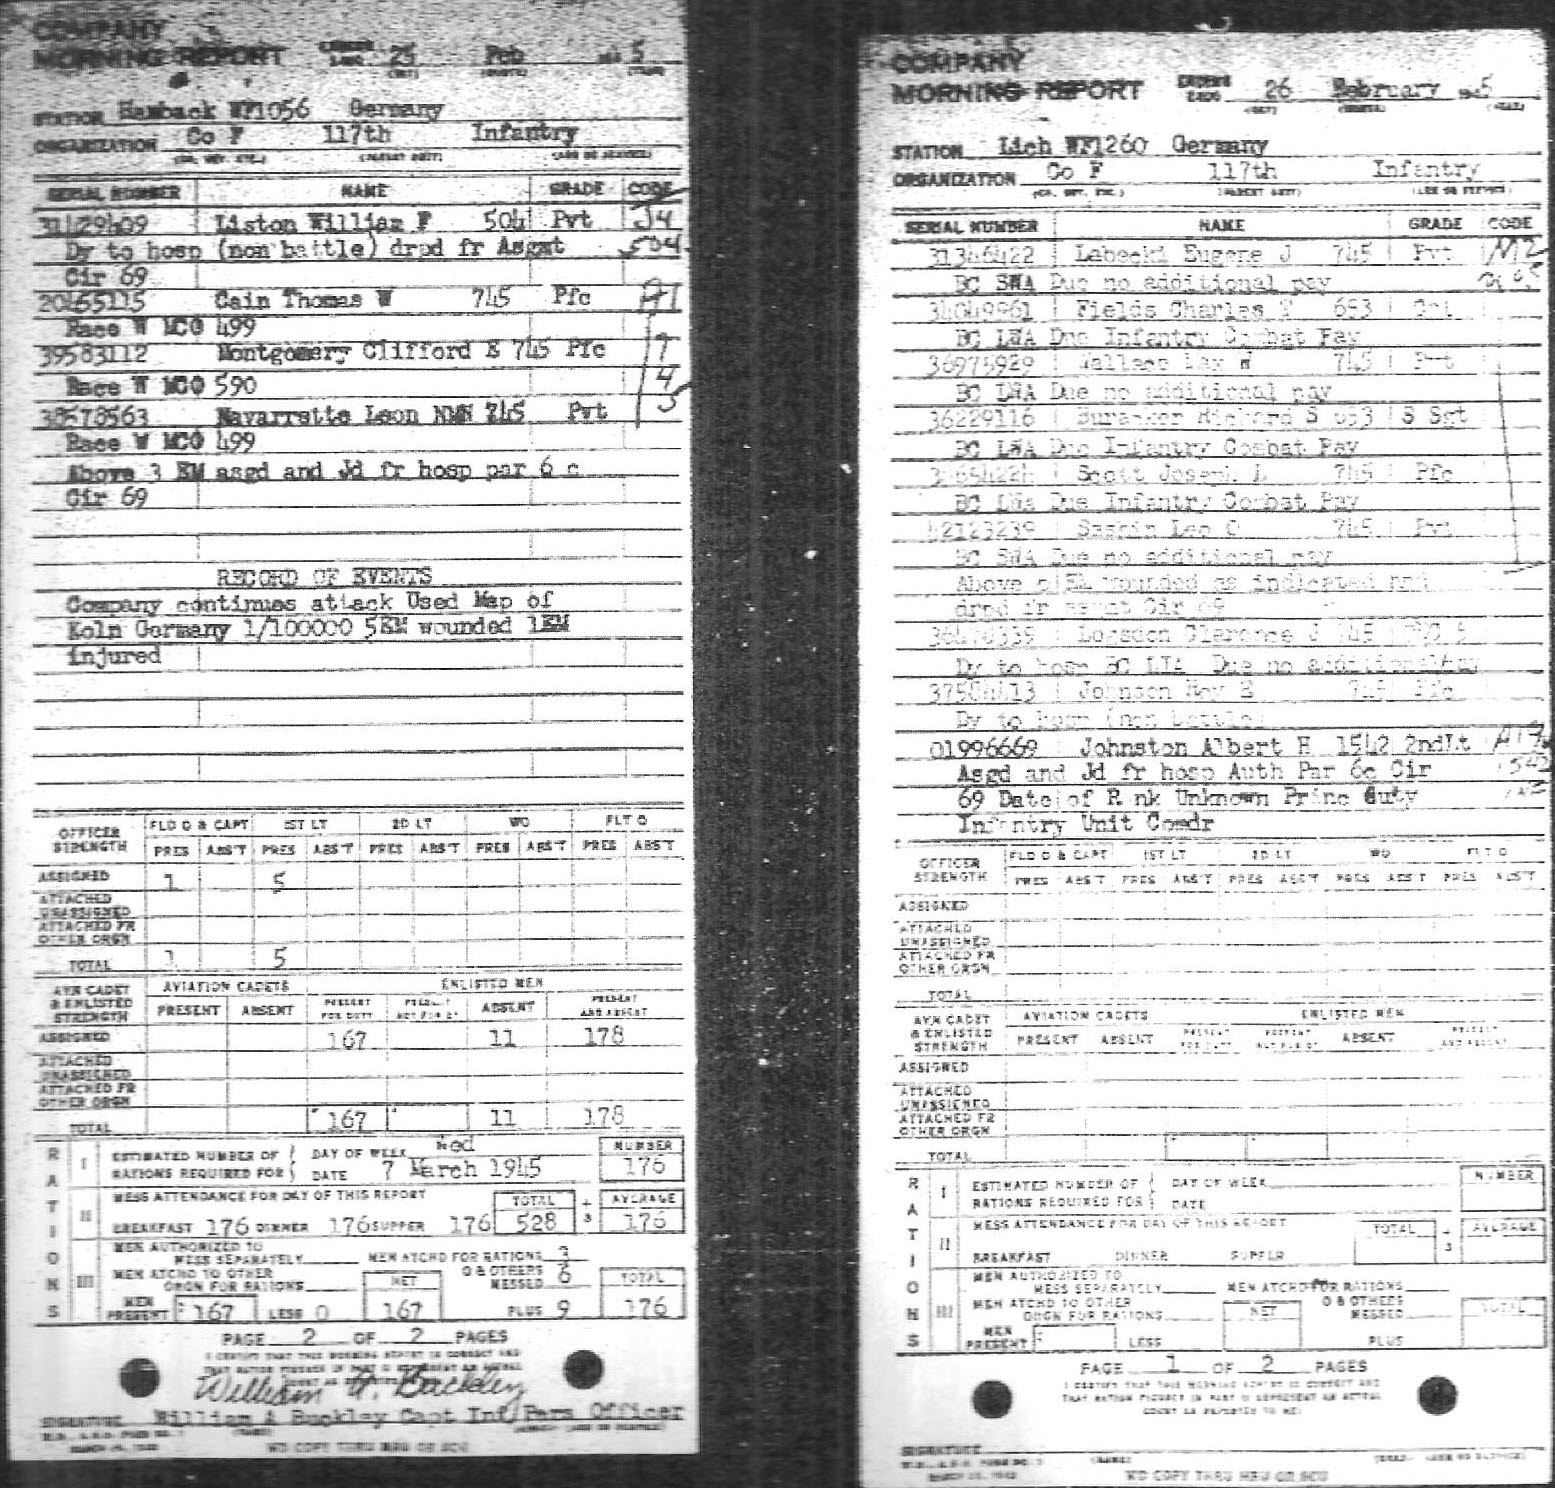 COMPANY
MORNING REPORT ENDING 2400 25 Feb 5
STATION Hamback WF1056 Germany
ORGANIZATION Co F 117th Infantry
SERIAL NUMBER NAME GRADE CODE
31429409 Liston William F 504 Pvt J4
Dy to hosp (non battle) drpd fr Asgmt 504
Cir 69
20465115 Cain Thomas W 745 Pfc A1
Race W MCO 499
39583112 Montgomery Clifford E 745 Pfc 7
Race W MCO 590 4
38578563 Navarrette Leon NMN 745 Pvt 5
Race W MCO 499
Above 3 EM asgd and Jd fr hosp par 6 c
Cir 69
RECORD OF EVENTS
Company continues attack Used Map of
Koln Germany 1/100000 5EM wounded 1EM
injured
OFFICER STRENGTH FLD O & CAPT 1ST LT 2D LT WO FLT O
PRES ABS'T PRES ABS'T PRES ABS'T PRES ABS'T PRES ABS'T
ASSIGNED 1 5
ATTACHED UNASSIGNED
ATTACHED FR OTHER ORGN
TOTAL 1 5
AVN CADET & ENLISTED STRENGTH AVIATION CADETS ENLISTED MEN
PRESENT ABSENT PRESENT FOR DUTY PRESENT NOT FOR DY ABSENT PRESENT AND ABSENT
ASSIGNED 167 11 178
ATTACHED UNASSIGNED
ATTACHED FR OTHER ORGN
TOTAL 167 11 178
RATIONS
I ESTIMATED NUMBER OF RATIONS REQUIRED FOR DAY OF WEEK Wed NUMBER
DATE 7 March 1945 176
II MESS ATTENDANCE FOR DAY OF THIS REPORT TOTAL ÷ 3 AVERAGE
BREAKFAST 176 DINNER 176 SUPPER 176 528 176
III MEN AUTHORIZED TO MESS SEPARATELY MEN ATCHD FOR RATIONS 3
MEN ATCHD TO OTHER ORGN FOR RATIONS NET O & OTHERS MESSED 6 TOTAL
MEN PRESENT 167 LESS 0 167 PLUS 9 176
PAGE 2 OF 2 PAGES
I CERTIFY THAT THIS MORNING REPORT IS CORRECT AND
THAT RATION FIGURES IN PART III REPRESENT AN ACTUAL
COUNT
William A. Buckley
SIGNATURE William A Buckley Capt Inf Pers Officer
WD COPY THRU MRU OR SCU
COMPANY
MORNING REPORT ENDING 2400 26 February 5
STATION Lich WF1260 Germany
ORGANIZATION Co F 117th Infantry
SERIAL NUMBER NAME GRADE CODE
31346422 Labecki Eugene J 745 Pvt M2
BC SWA Due no additional pay
34049961 Fields Charles 653
BC LWA Due Infantry Combat Pay
36975929 Wallace Ray W 745 Pvt
BC LWA Due no additional pay
36229116 Richard S 653 S Sgt
BC LWA Due Infantry Combat Pay
Scott Joseph L 745 Pfc
BC LWA Due Infantry Combat Pay
42123239 Leo C 745 Pvt
BC SWA Due no additional pay
Above EM wounded as indicated and
drpd fr asgmt Cir 69
Clarence J 745
Dy to hosp BC LIA Due no additional pay
Johnson Roy E 745 Pfc
Dy to hosp (non battle)
01996669 Johnston Albert H 1542 2ndLt
Asgd and Jd fr hosp Auth Par 6c Cir 1542
69 Date of Rank Unknown Princ duty
Infantry Unit Comdr
OFFICER STRENGTH FLD O & CAPT 1ST LT 2D LT WO FLT O
PRES ABS'T PRES ABS'T PRES ABS'T PRES ABS'T PRES ABS'T
ASSIGNED
ATTACHED UNASSIGNED
ATTACHED FR OTHER ORGN
TOTAL
AVN CADET & ENLISTED STRENGTH AVIATION CADETS ENLISTED MEN
PRESENT ABSENT PRESENT FOR DUTY PRESENT NOT FOR DY ABSENT PRESENT AND ABSENT
ASSIGNED
ATTACHED UNASSIGNED
ATTACHED FR OTHER ORGN
TOTAL
RATIONS
I ESTIMATED NUMBER OF RATIONS REQUIRED FOR DAY OF WEEK NUMBER
DATE
II MESS ATTENDANCE FOR DAY OF THIS REPORT TOTAL ÷ 3 AVERAGE
BREAKFAST DINNER SUPPER
III MEN AUTHORIZED TO MESS SEPARATELY MEN ATCHD FOR RATIONS
MEN ATCHD TO OTHER ORGN FOR RATIONS NET O & OTHERS MESSED TOTAL
MEN PRESENT LESS PLUS
PAGE 1 OF 2 PAGES
I CERTIFY THAT THIS MORNING REPORT IS CORRECT AND
THAT RATION FIGURES IN PART III REPRESENT AN ACTUAL
COUNT AS REPORTED TO ME
SIGNATURE
WD COPY THRU MRU OR SCU